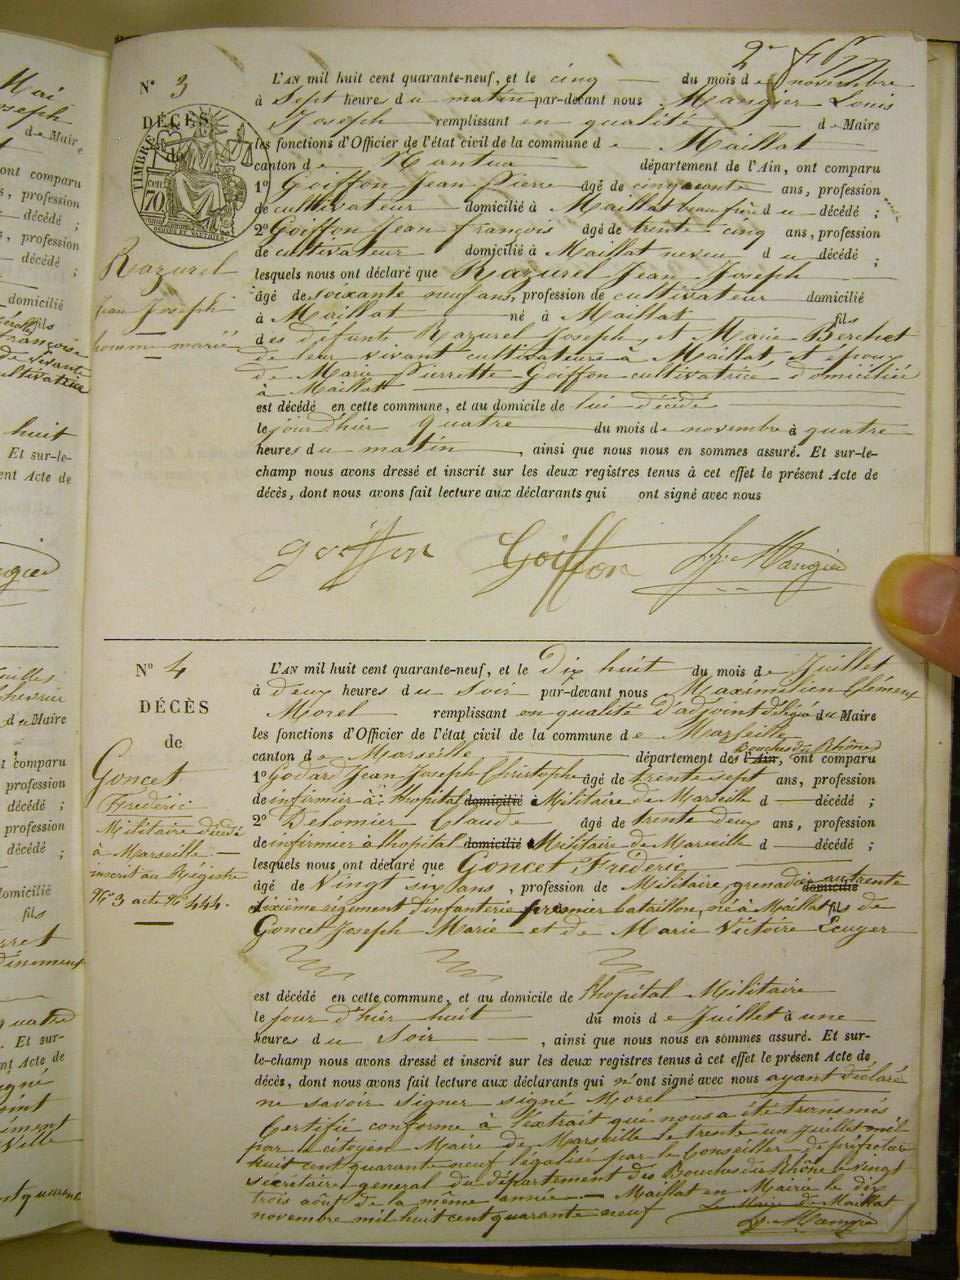 2e fbre
N° 3
DÉCÈS
de
TIMBRE
cen
70
Razurel
Jean Joseph
homme marié
L'AN mil huit cent quarante-neuf, et le cinq du mois de novembre
à Sept heures du matin par-devant nous Mangier Louis
Joseph remplissant en qualité de Maire
les fonctions d'Officier de l'état civil de la commune de Maillat
canton de Nantua département de l'Ain, ont comparu
1° Goiffon Jean Pierre âgé de cinquante ans, profession
de cultivateur domicilié à Maillat beau frère du décédé ;
2° Goiffon Jean françois âgé de trente cinq ans, profession
de cultivateur domicilié à Maillat neveu du décédé ;
lesquels nous ont déclaré que Razurel Jean Joseph
âgé de soixante neuf ans, profession de cultivateur domicilié
à Maillat né à Maillat fils
des défunts Razurel Joseph, et Marie Berchet
de leur vivant cultivateurs à Maillat, et époux
de Marie Pierrette Goiffon cultivatrice domiciliée
à Maillat
est décédé en cette commune, et au domicile de lui décédé
le jour d'hier quatre du mois de novembre à quatre
heures du matin, ainsi que nous nous en sommes assuré. Et sur-le-
champ nous avons dressé et inscrit sur les deux registres tenus à cet effet le présent Acte de
décès, dont nous avons fait lecture aux déclarants qui ont signé avec nous
goiffon Goiffon Ls Mangier
N° 4
DÉCÈS
de
Goncet
Frédéric
Militaire décédé
à Marseille
inscrit au Régistre
N° 3 acte N° 444.
L'AN mil huit cent quarante-neuf, et le Dix huit du mois de Juillet
à deux heures du Soir par-devant nous Maximilien Clément
Morel remplissant en qualité d'adjoint délégué du Maire
les fonctions d'Officier de l'état civil de la commune de Marseille
canton de Marseille département des l'Ain, Bouches du Rhône ont comparu
1° Godard Jean Joseph Christophe âgé de trente sept ans, profession
de infirmier à l'hopital domicilié à Militaire de Marseille d décédé ;
2° Delomier Claude âgé de trente deux ans, profession
de infirmier à l'hopital domicilié à Militaire de Marseille d décédé ;
lesquels nous ont déclaré que Goncet Frédéric
âgé de Vingt six ans, profession de Militaire, grenadier au trente domicilié
sixième régiment d'infanterie premier bataillon, né à Maillat fils de
Goncet Joseph Marie et de Marie Victoire Leuger
est décédé en cette commune, et au domicile de l'hopital Militaire
le jour d'hier huit du mois de Juillet à une
heures du Soir, ainsi que nous nous en sommes assuré. Et sur-
le-champ nous avons dressé et inscrit sur les deux registres tenus à cet effet le présent Acte de
décès, dont nous avons fait lecture aux déclarants qui n'ont signé avec nous ayant déclaré
ne savoir signer signé Morel
Certifié conforme à l'extrait qui nous a été transmis
par le citoyen Maire de Marseille le trente un Juillet mil
huit cent quarante neuf légalisé par le Conseiller de préfecture
secrétaire général du département des Bouches du Rhône le vingt
trois août de la même année. Maillat en Mairie le dix
novembre mil huit cent quarante neuf Le Maire de Maillat
Ls Mangier